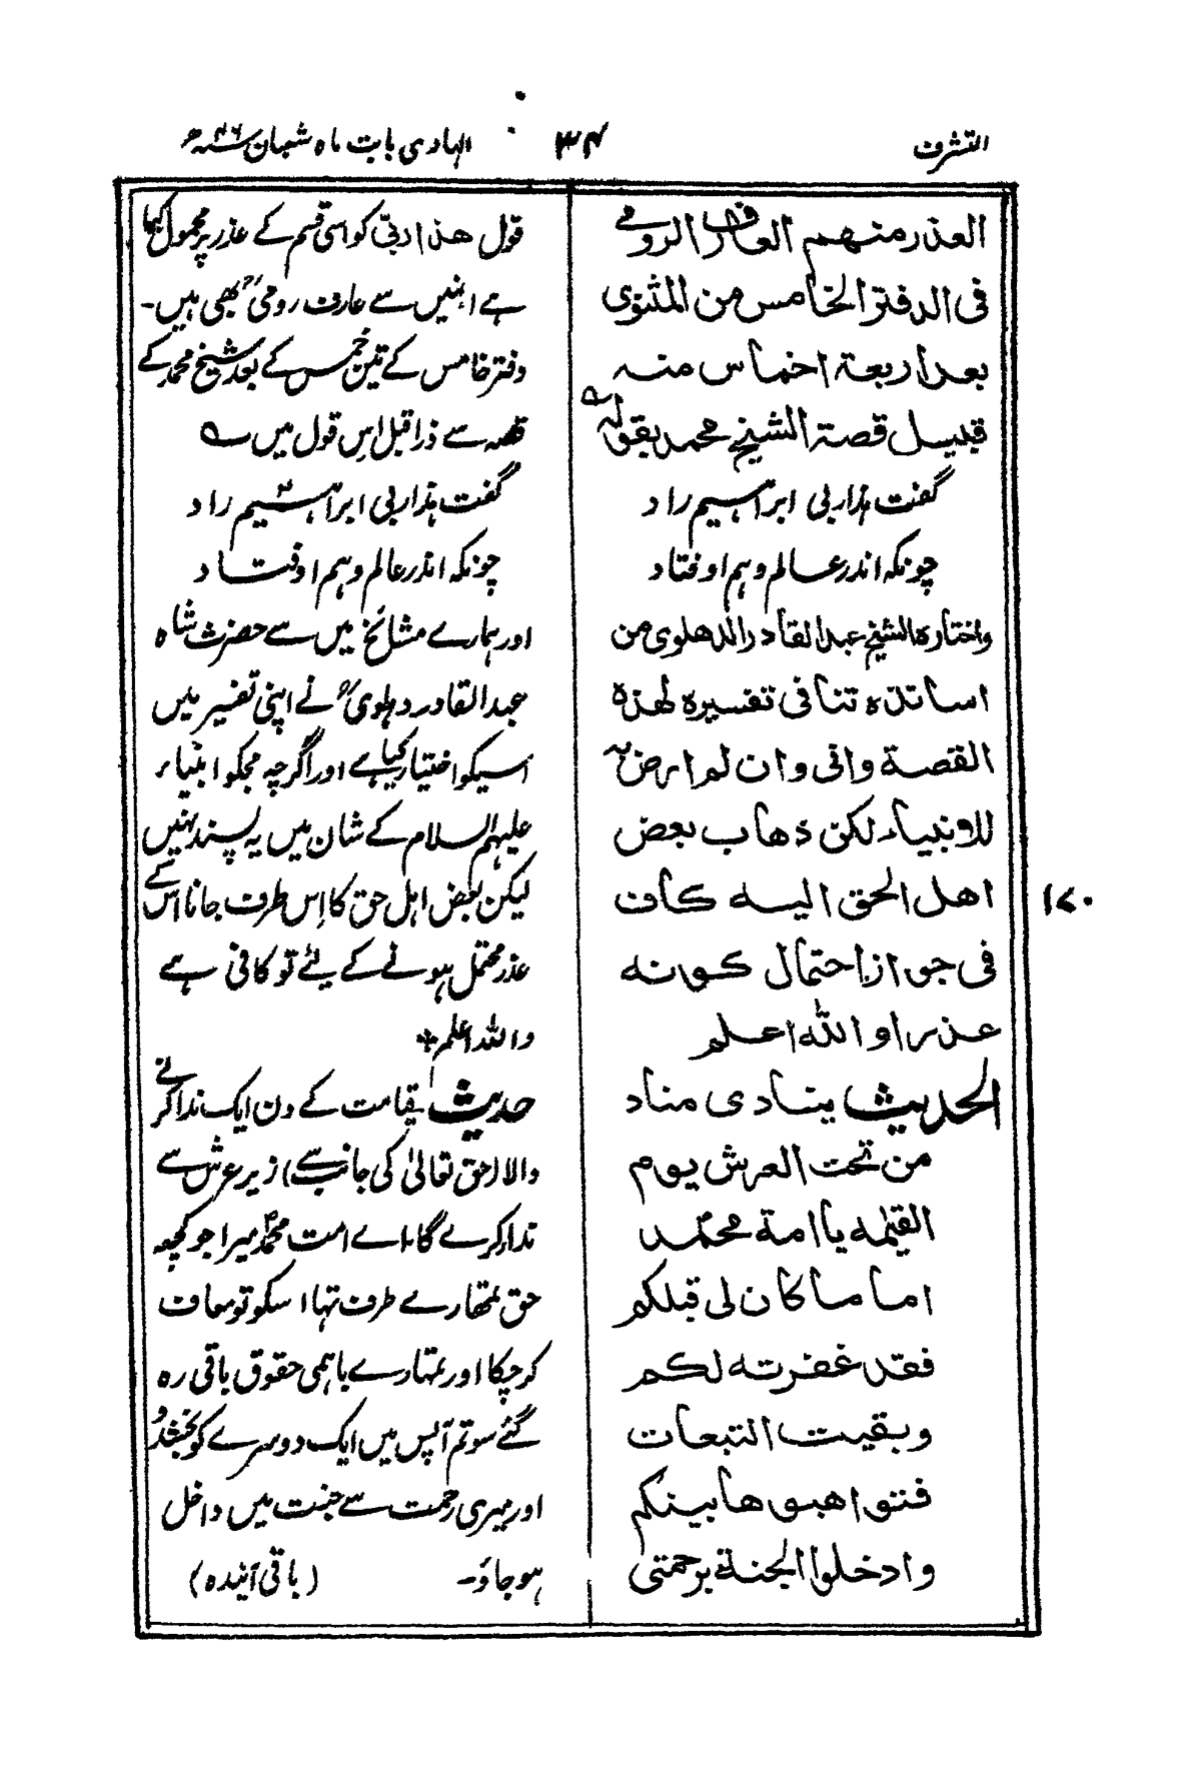 التشرف
۳۴
الہادی بابت ماہ شعبان ۴۶ سنہ ھ
العذر منهم العارف الرومی
فی الدفتر الخامس من المثنوی
بعد اربعة اخماس منه
قبیل قصة الشیخ محمد بقوله
گفت ہذا ربی ابراہیم راد
چونکہ اندر عالم وہم اوفتاد
واختاره الشیخ عبد القادر الدهلوی من
اساتذه تنا فی تفسیره لهذه
القصة وانی وان لم ارض به
للانبیاء لکن ذهاب بعض
اهل الحق الیه کاف
فی جواز احتمال کونه
عذرا والله اعلم
الحدیث ینادی مناد
من تحت العرش یوم
القیمه یا امة محمد
اما ما کان لی قبلکم
فقد غفرته لکم
وبقیت التبعات
فتواهبوها بینکم
وادخلوا الجنة برحمتی
۱۷۰
قول هذا ربی کو اسی قسم کے عذر پر محمول کیا
ہے انہیں سے عارف رومیؒ بھی ہیں۔
دفتر خامس کے تین خمس کے بعد شیخ محمد کے
قصہ سے ذرا قبل اس قول میں
گفت ہذا ربی ابراہیم راد
چونکہ اندر عالم وہم اوفتاد
اور ہمارے مشائخ میں سے حضرت شاہ
عبد القادر دہلویؒ نے اپنی تفسیر میں
اسیکو اختیار کیا ہے اور اگرچہ مجکو انبیاء
علیہم السلام کے شان میں یہ پسند نہیں
لیکن بعض اہل حق کا اِس طرف جانا اس کے
عذر محتمل ہونے کے لیے تو کافی ہے
واللہ اعلم
حدیث قیامت کے دن ایک ندا کرنے
والا (حق تعالیٰ کی جانب سے) زیر عرش سے
ندا کرے گا اے امت محمدؐ میرا جو کچھ
حق تمھارے طرف تہا اسکو تو معاف
کر چکا اور تمہارے باہمی حقوق باقی رہ
گئے سو تم آپس میں ایک دوسرے کو بخشدو
اور میری رحمت سے جنت میں داخل
ہو جاؤ۔ (باقی آئندہ)